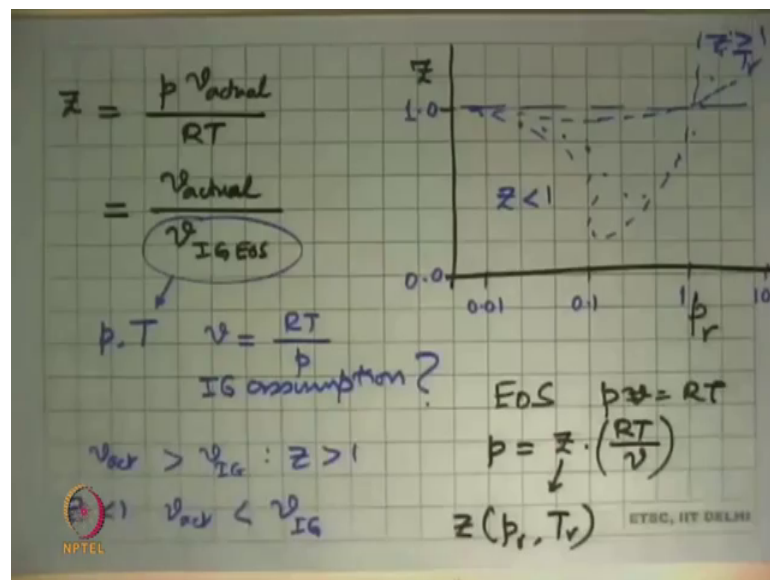 Z = p v_actual / RT
= v_actual / v_IG EOS
p. T v = RT / p
IG assumption?
v_act > v_IG : Z > 1
Z < 1 v_act < v_IG
Z
1.0
Z < 1
0.0
0.01 0.1 1 10
p_r
Z > 1
T_r
EOS pv = RT
p = Z · (RT / v)
Z (p_r, T_r)
ETSC, IIT DELHI
NPTEL